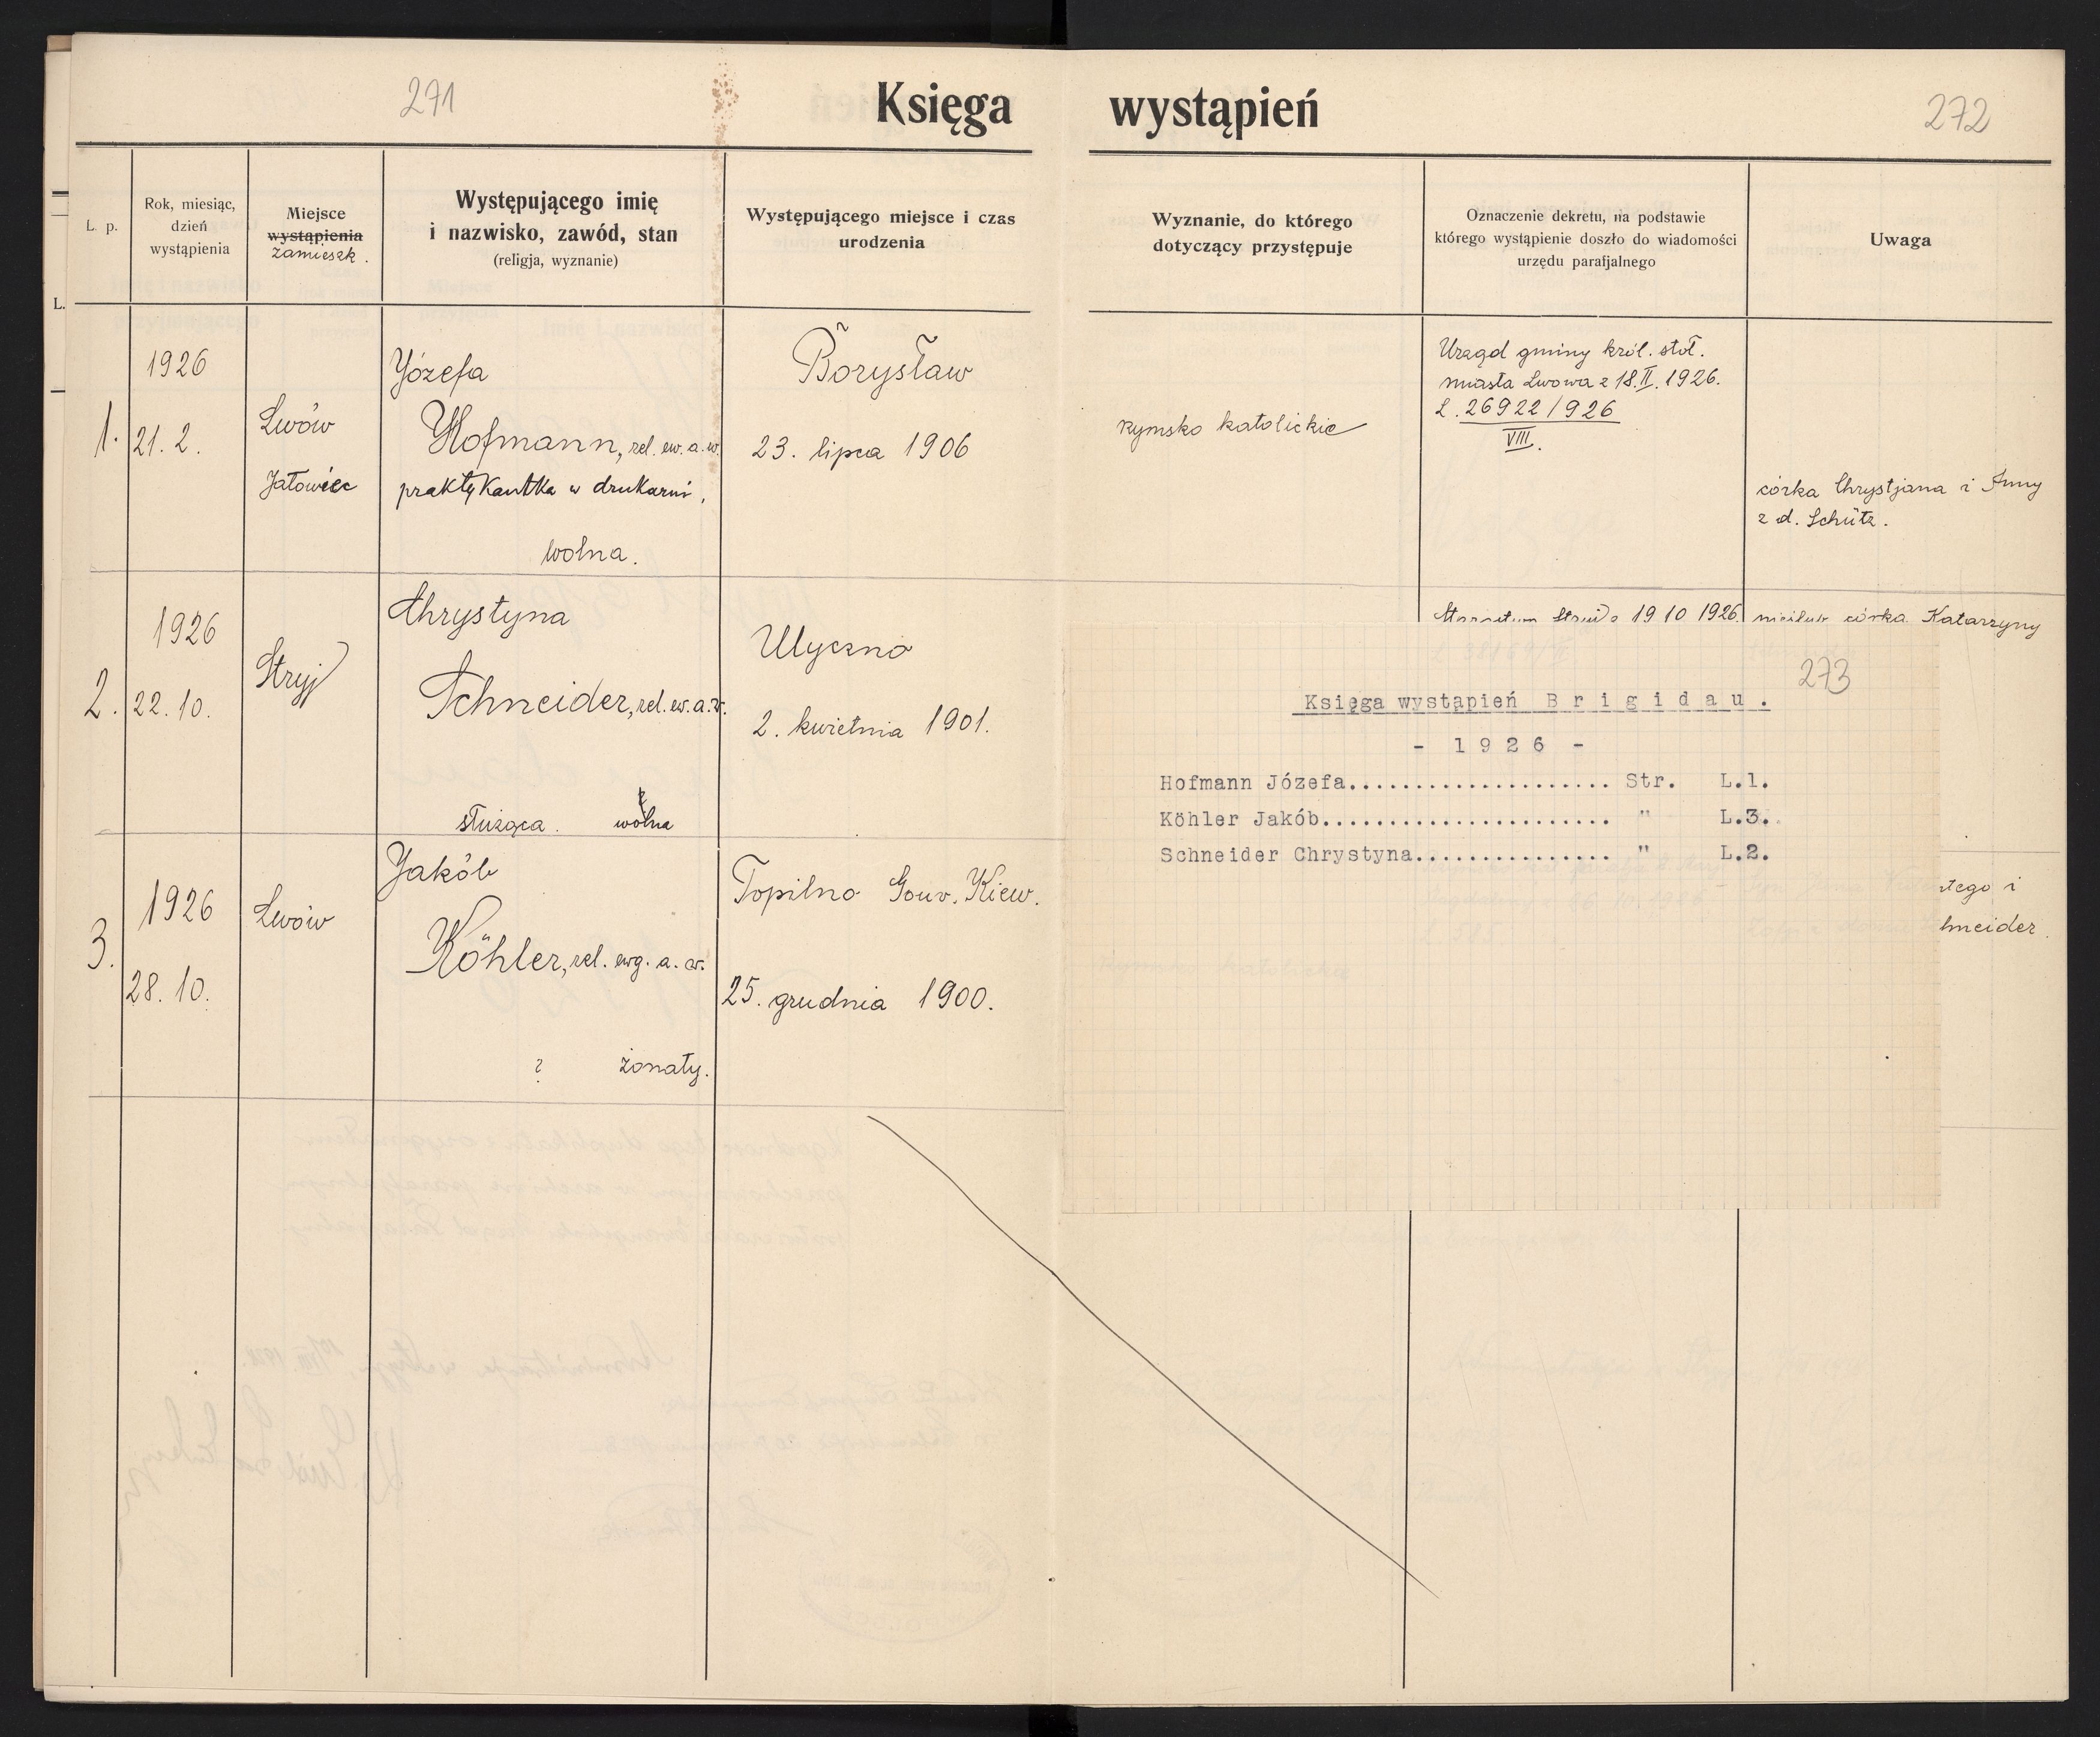 271
Księga wystąpień
272
L. p.
Rok, miesiąc,
dzień
wystąpienia
Miejsce
wystąpienia
zamieszk.
Występującego imię
i nazwisko, zawód, stan
(religja, wyznanie)
Występującego miejsce i czas
urodzenia
Wyznanie, do którego
dotyczący przystępuje
Oznaczenie dekretu, na podstawie
którego wystąpienie doszło do wiadomości
urzędu parafjalnego
Uwaga
L.
1.
1926
21. 2.
Lwów
Jałowiec
Józefa
Hofmann, rel. ew. a. w.
praktykantka w drukarni,
wolna.
Borysław
23. lipca 1906
rzymsko katolickie
Urząd gminy król. stoł.
miasta Lwowa z 18.II. 1926.
L. 26922/926
VIII.
córka Chrystjana i Anny
z d. Schütz.
2.
1926
22. 10.
Stryj
Chrystyna
Schneider, rel. ew. a. w.
służąca. wolna
Uliczno
2. kwietnia 1901.
19 10 1926.
córka Katarzyny
273
Księga wystąpień Brigidau.
- 1926 -
Hofmann Józefa..................... Str. L.1.
Köhler Jakób....................... " L.3.
Schneider Chrystyna................ " L.2.
3.
1926
28. 10.
Lwów
Jakób
Köhler, rel. ewg. a. w.
? żonaty.
Topilno Gouv. Kiew.
25. grudnia 1900.
tego i
hneider.